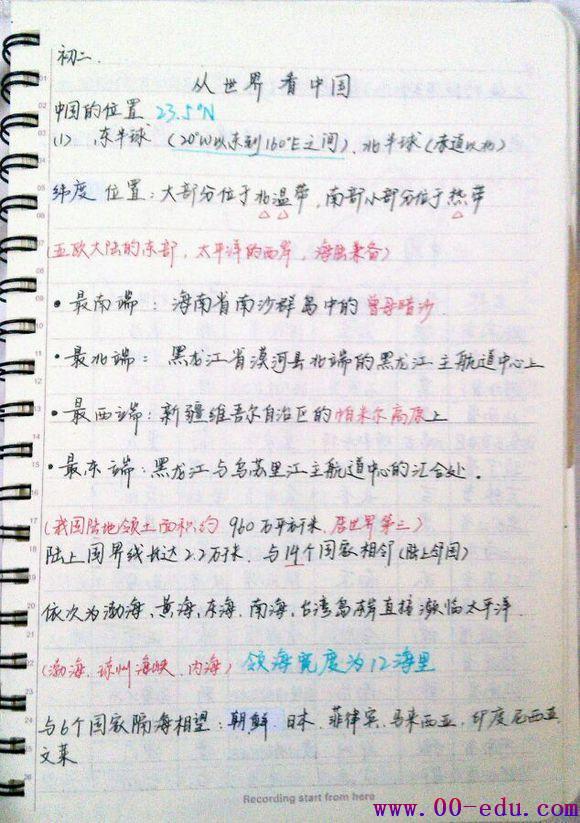 初二.
从世界看中国
中国的位置 23.5°N
(1) 东半球 (20°W以东到160°E之间)、北半球 (赤道以北)
纬度位置：大部分位于北温带，南部小部分位于热带
(亚欧大陆的东部，太平洋的西岸，海陆兼备)
• 最南端：海南省南沙群岛中的曾母暗沙
• 最北端：黑龙江省漠河县北端的黑龙江主航道中心上
• 最西端：新疆维吾尔自治区的帕米尔高原上
• 最东端：黑龙江与乌苏里江主航道中心的汇合处.
(我国陆地领土面积约 960万平方千米，居世界第三)
陆上国界线长达2.2万千米，与14个国家相邻(陆上邻国)
依次为渤海、黄海、东海、南海、台湾岛东岸直接濒临太平洋
(渤海、琼州海峡、内海) 领海宽度为12海里
与6个国家隔海相望：朝鲜 日本、菲律宾、马来西亚、印度尼西亚
文莱
Recording start from here
www.00-edu.com